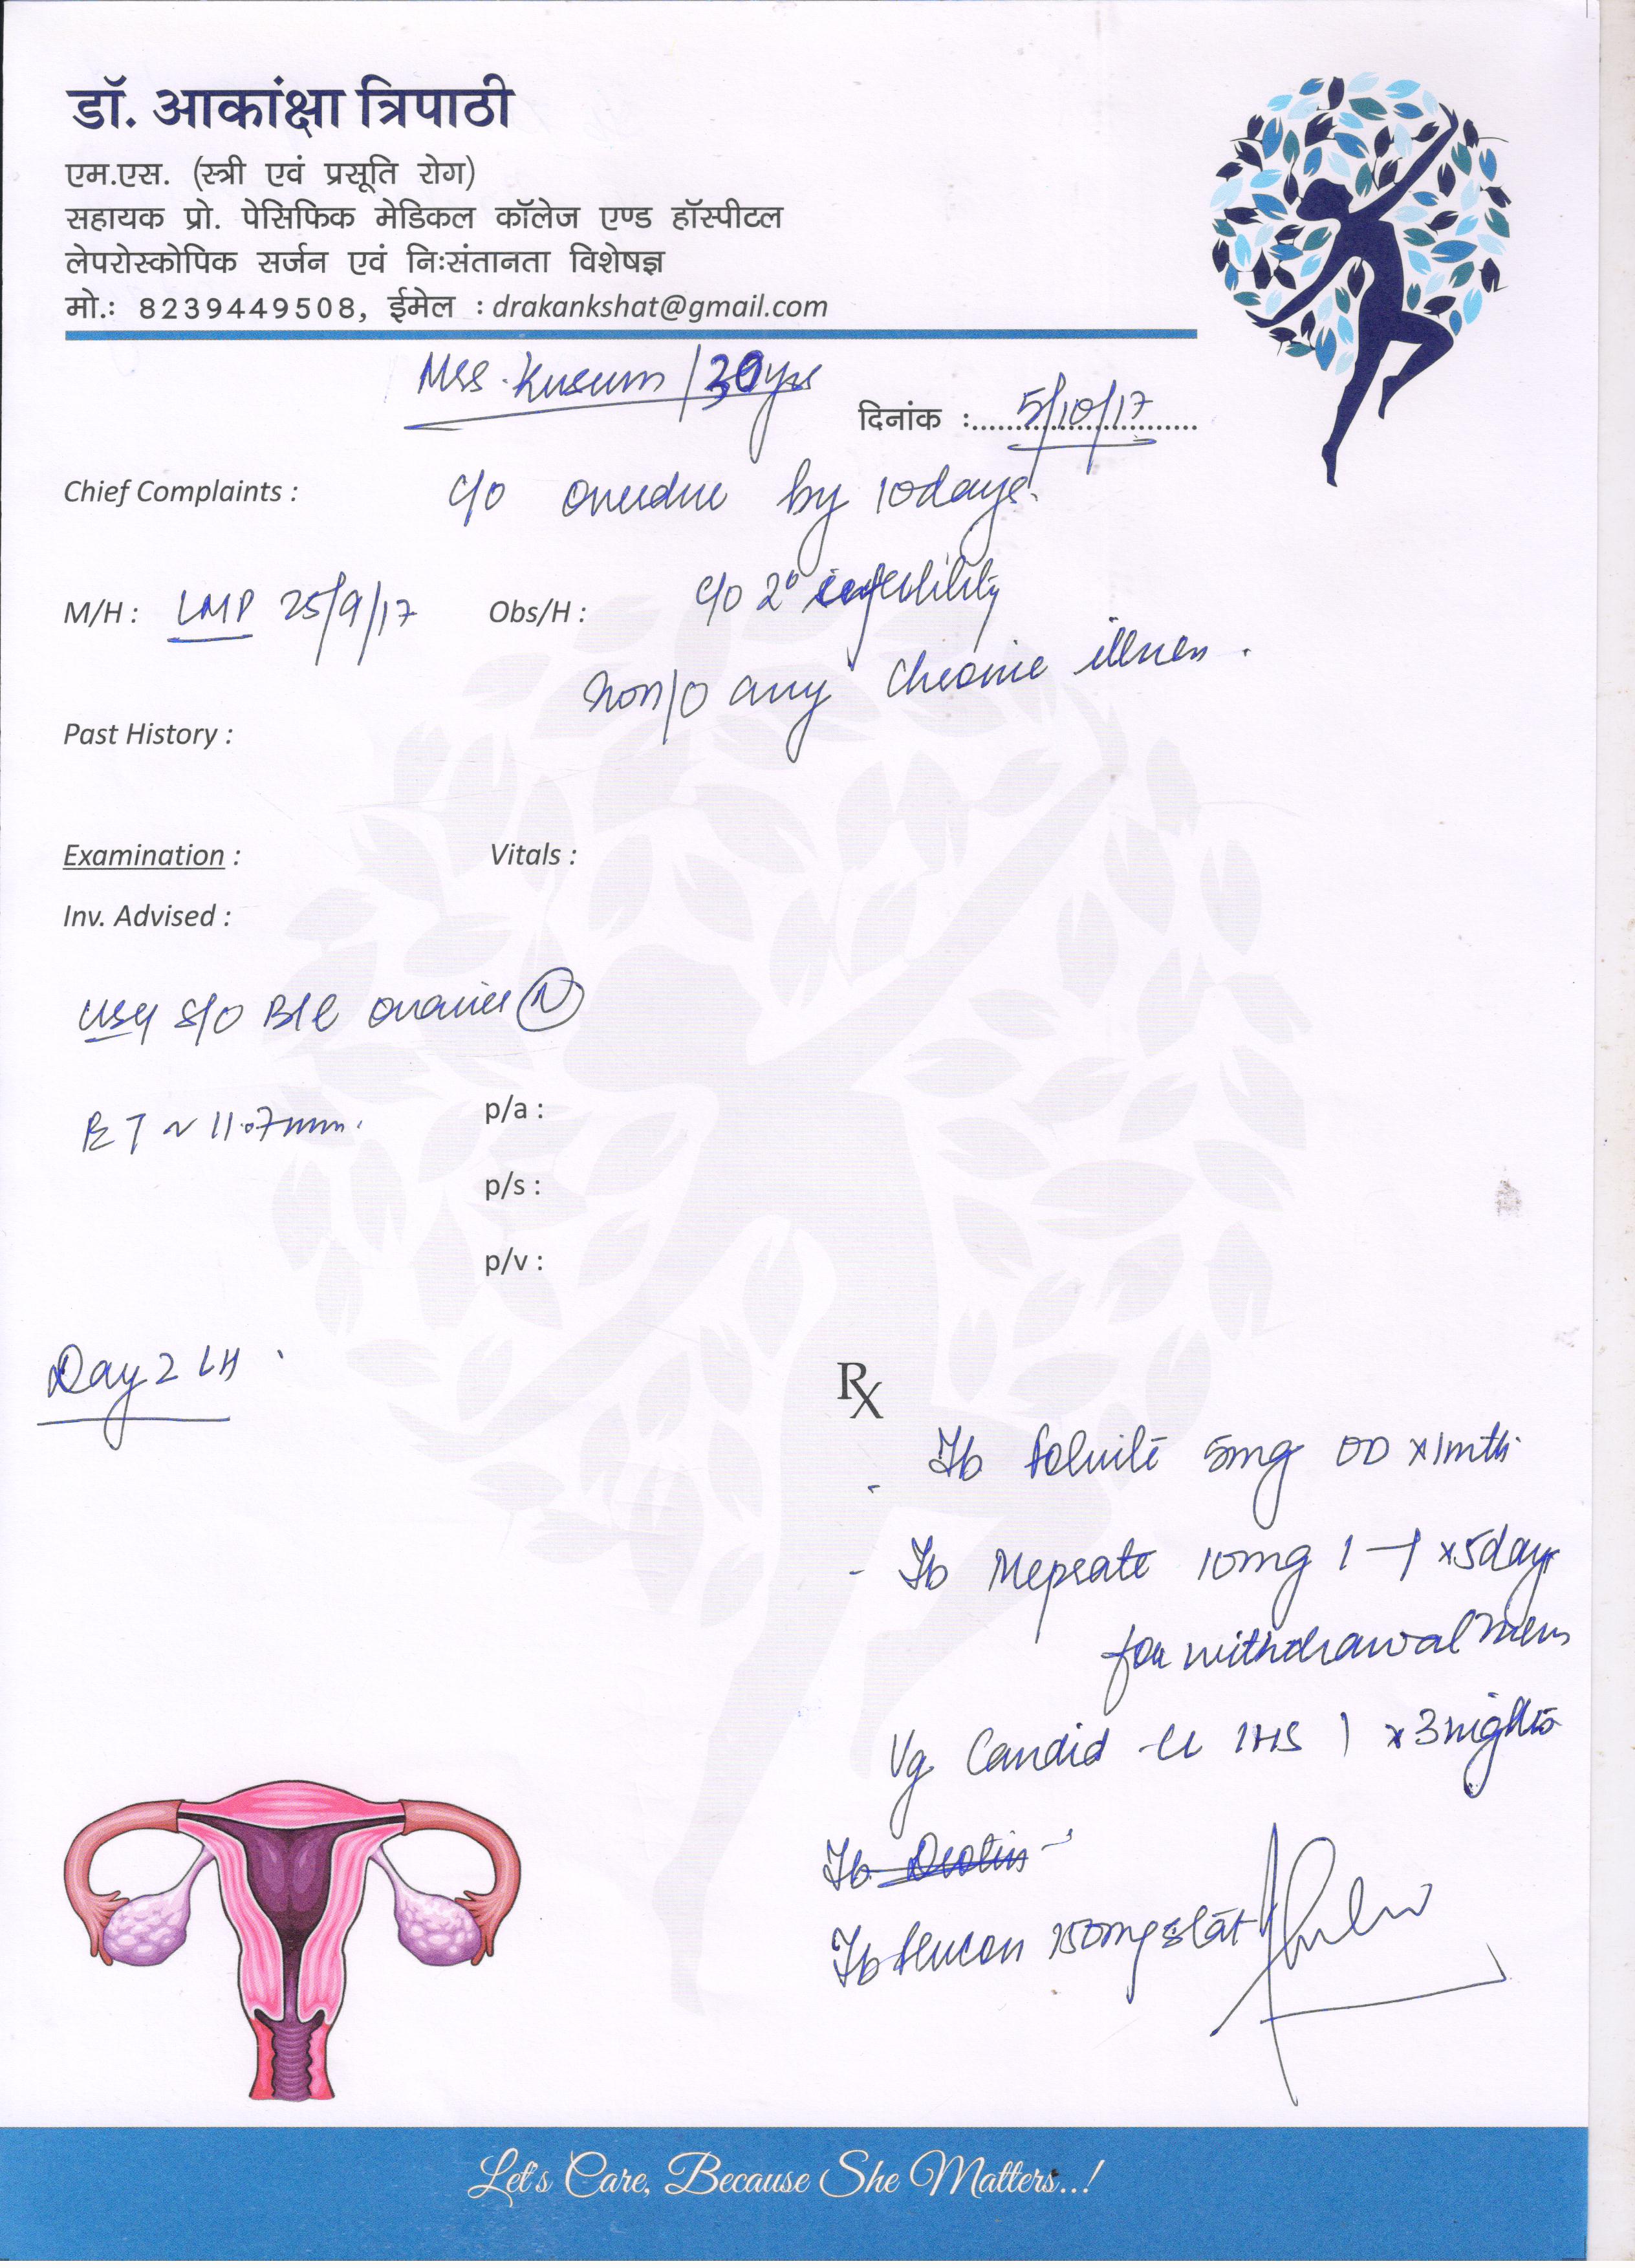 डॉ. आकांक्षा त्रिपाठी
एम.एस. (स्त्री एवं प्रसूति रोग)
सहायक प्रो. पेसिफिक मेडिकल कॉलेज एण्ड हॉस्पीटल
लेपरोस्कोपिक सर्जन एवं निःसंतानता विशेषज्ञ
मो.: 8239449508, ईमेल : drakankshat@gmail.com
Mrs. Kusum / 30yrs
दिनांक : 5/10/17
Chief Complaints : c/o overdue by 10 days.
M/H : LMP 25/9/17 Obs/H : c/o 2° infertility
any chronic illness.
Past History :
Examination : Vitals :
Inv. Advised :
USG S/O B/L ovaries (N)
ET ~ 11.7mm.
p/a :
p/s :
p/v :
Day 2 LH
Rx
- Tb Folvite 5mg OD x 1mth
- Tb Meprate 10mg 1 - 1 x 5days
for withdrawal mens
Vg Candid -CL 1HS x 3 nights
Tb
Tb Flucon 150mg stat
Let's Care, Because She Matters..!